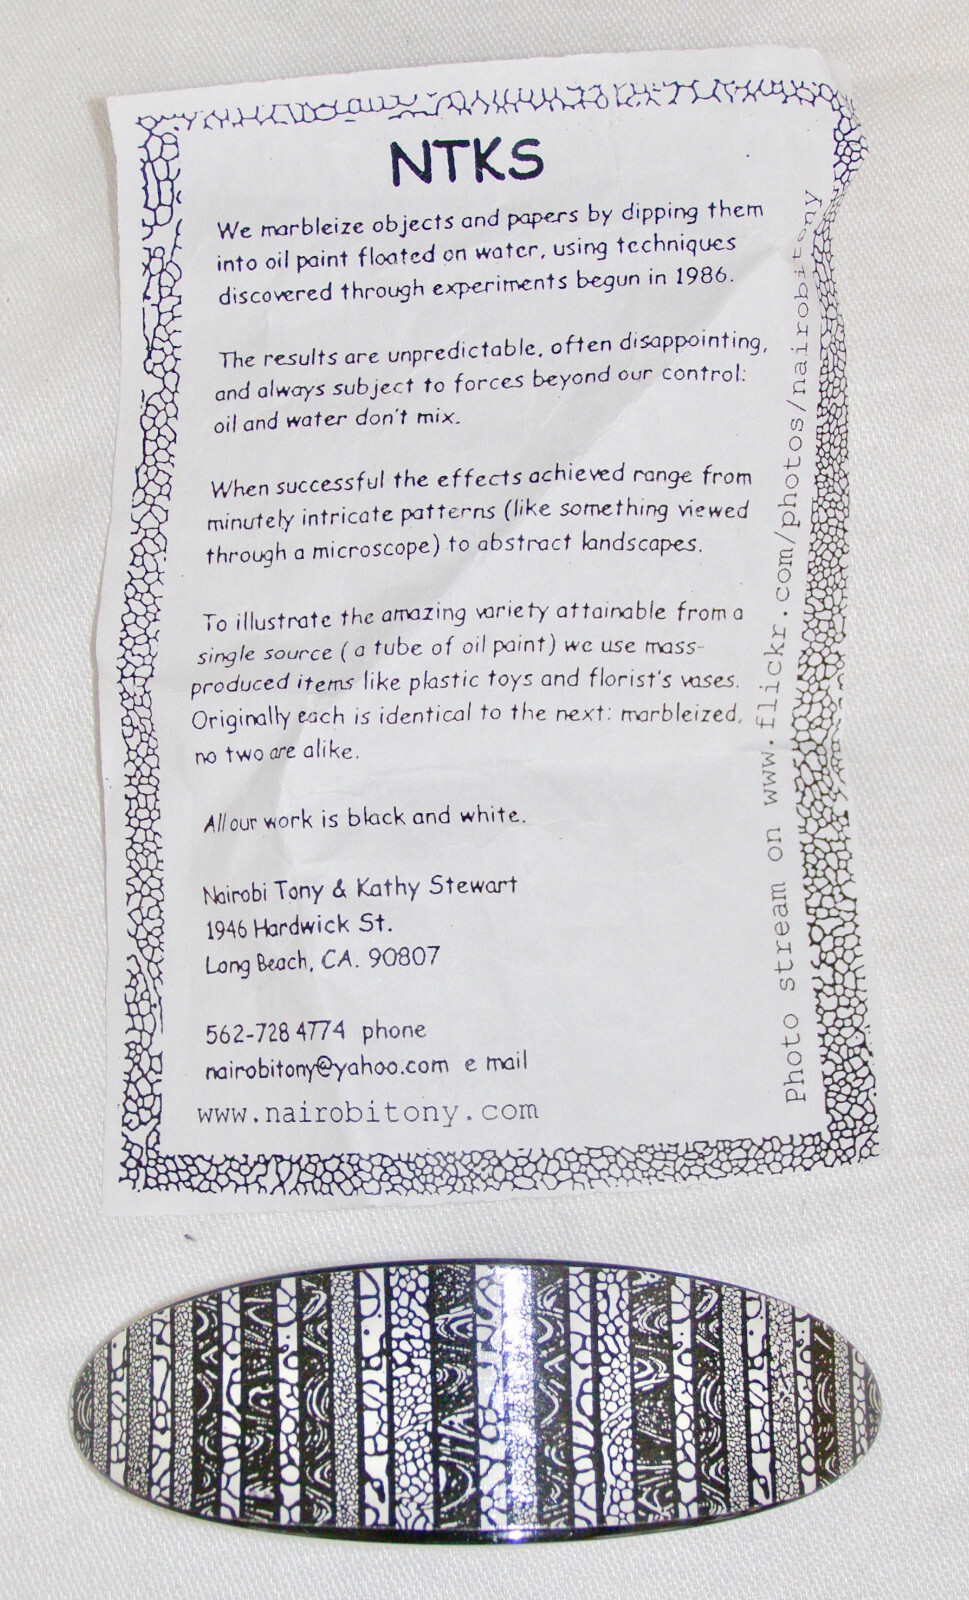 NTKS
We marbleize objects and papers by dipping them
into oil paint floated on water, using techniques
discovered through experiments begun in 1986.
The results are unpredictable, often disappointing,
and always subject to forces beyond our control:
oil and water don't mix.
When successful the effects achieved range from
minutely intricate patterns (like something viewed
through a microscope) to abstract landscapes.
To illustrate the amazing variety attainable from a
single source ( a tube of oil paint) we use mass-
produced items like plastic toys and florist's vases.
Originally each is identical to the next: marbleized,
no two are alike.
All our work is black and white.
Nairobi Tony & Kathy Stewart
1946 Hardwick St.
Long Beach, CA. 90807
562-728 4774 phone
nairobitony@yahoo.com e mail
www.nairobitony.com
Photo stream on www.flickr.com/photos/nairobitony